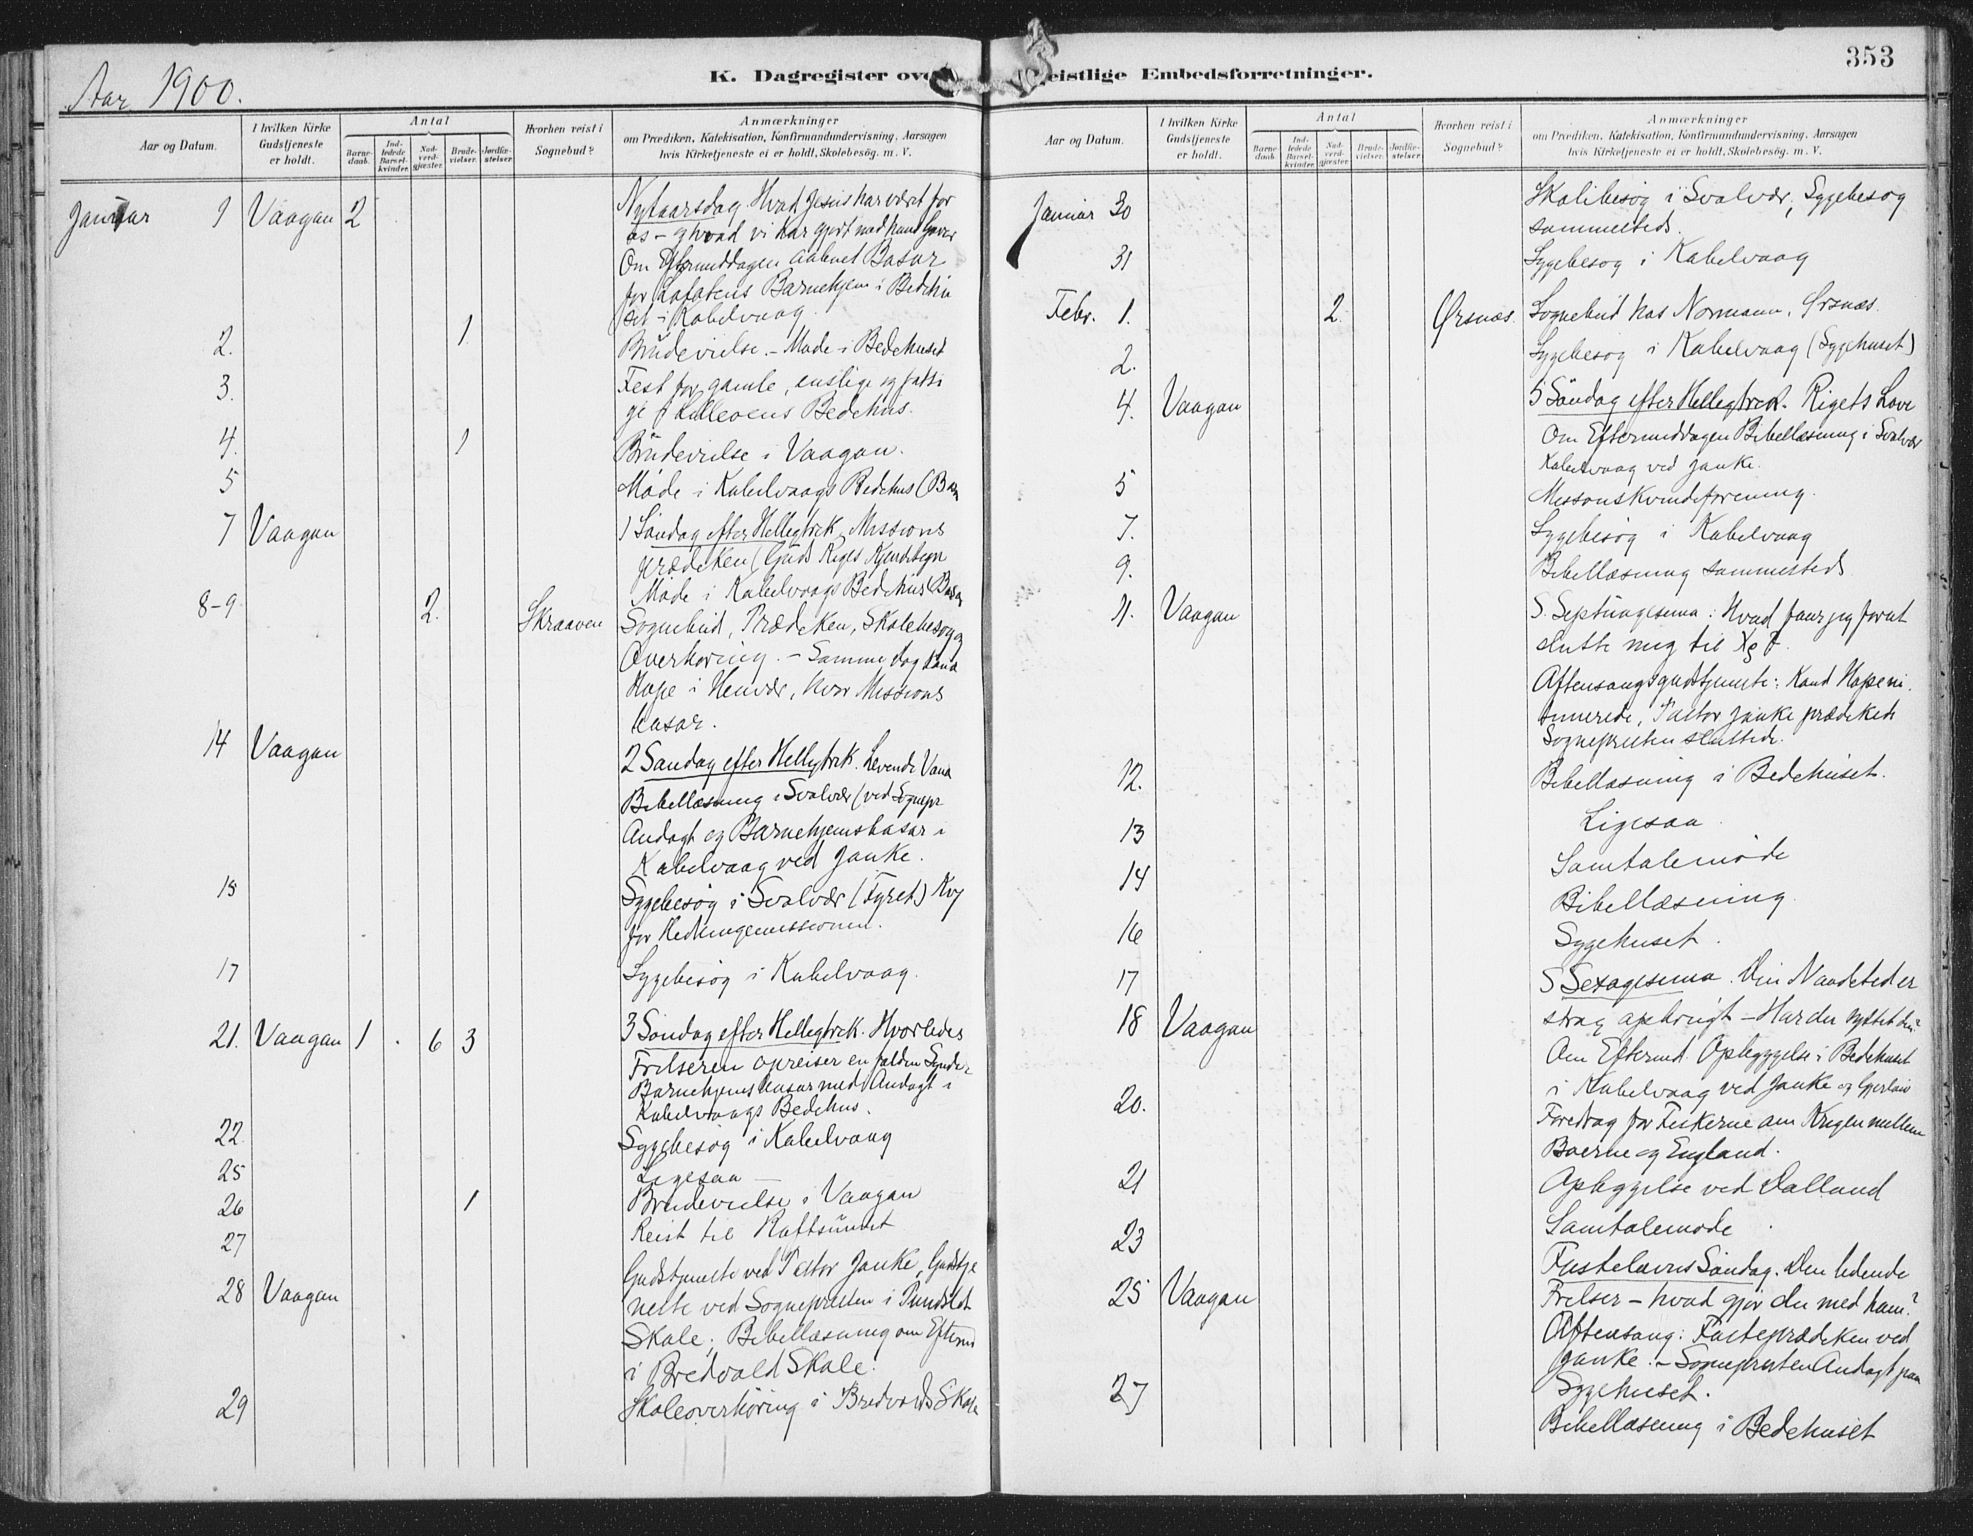 353
Aar 1900.
K. Dagregister over geistlige Embedsforretninger.
Aar og Datum.
I hvilken Kirke Gudstjeneste er holdt.
Antal
Barnedaab.
Indledede Barselkvinder.
Nadverdgjæster.
Brudevielser.
Jordfæstelser.
Hvorhen reist i Sognebud?
Anmærkninger
om Prædiken, Katekisation, Konfirmandundervisning, Aarsagen
hvis Kirketjeneste ei er holdt, Skolebesøg. m. V.
Januar 1 Vaagan 2 Nytaarsdag. Hvad Jesus har været for
os – og hvad vi har gjort med hans Gaver
Om Eftermiddagen aabnet Basar
for Lofotens Barnehjem i Bedehu
set i Kabelvaag.
2. 1 Brudevielse. – Møde i Bedehuset
3. Fest for gamle, enslige og fatti
ge i Bedehus.
4. 1 Brudevielse i Vaagan.
5 Møde i Kabelvaags Bedehus (Basar
7 Vaagan 1 Søndag efter Helligtrek. Missions
prædiken (Guds Riges Kjendetegn
Møde i Kabelvaags Bedehus (Basar
8-9 2. Skraaven Sognebud, Prædiken, Skolebesøg og
Overhøring. – Samme dag Kand
Hope i Henvær, hvor Missions
basar.
14 Vaagan 2 Søndag efter Helligtrek. Levende Vand
Bibellæsning i Svolvær (ved Sognepr
Andagt og Barnehjemsbasar i
Kabelvaag ved Janke.
15 Sygebesøg i Svolvær (Fyret) Kvf
for Hedningemissionen.
17 Sygebesøg i Kabelvaag.
21. Vaagan 1 . 6 3 3 Søndag efter Helligtrek. Hvorledes
Frelseren opreiser en falden Synder
Barnehjemsbasar med Andagt i
Kabelvaags Bedehus.
22 Sygebesøg i Kabelvaag
25 Ligesaa
26 1 Brudevielse i Vaagan
27 Reist til Raftsundet
28 Vaagan Gudstjeneste ved Pastor Janke, Gudstje
neste ved Sognepresten i
Skole; Bibellæsning om Efterm
i Bredvold Skole.
29 Skoleoverhøring i Bredvolds Skole
Aar og Datum.
I hvilken Kirke Gudstjeneste er holdt.
Antal
Barnedaab.
Indledede Barselkvinder.
Nadverdgjester.
Brudevielser.
Jordfæstelser.
Hvorhen reist i Sognebud?
Anmærkninger
om Prædiken, Katekisation, Konfirmandundervisning, Aarsagen
hvis Kirketjeneste ei er holdt, Skolebesøg. m. V.
Januar 30 Skolebesøg i Svolvær, Sygebesøg
sammesteds.
31 Sygebesøg i Kabelvaag
Febr. 1. 2. Ørsnæs. Sognebud hos Normann, Ørsnæs.
2. Sygebesøg i Kabelvaag (Sygehuset)
4. Vaagan 5 Søndag efter Helligtrek. Rigets Love
Om Eftermiddagen Bibellæsning i Svolvær
Kabelvaag ved Janke.
5 Missonskvindeforening.
7. Sygebesøg i Kabelvaag
9. Bibellæsning sammesteds
11. Vaagan S. Septuagesima: Hvad faar jeg for at
slutte mig til
Aftensangsgudstjeneste: Kand Hope
Pastor Janke prædikede
Sognepresten sluttede.
12. Bibellæsning i Bedehuset.
13 Ligesaa
14 Samtalemøde
16 Bibellæsning
17 Sygehuset.
18 Vaagan S Sexagesima. Din Naadetid er
strag ophørigt – Har du nyttet den?
Om Efterm. Opbyggelse i Bedehuset
i Kabelvaag ved Janke og
20. Foredrag for Fiskerne om Krigen mellem
Boerne og England.
21 Opbyggelse ved Dalland
23 Samtalemøde
25 Vaagan Fastelavns Søndag. Den lidende
Frelser – hvad gjør du med ham?
Aftensang: Fasteprædiken ved
Janke. – Sognepresten Andagt paa
Sygehuset.
27 Bibellæsning i Bedehuset